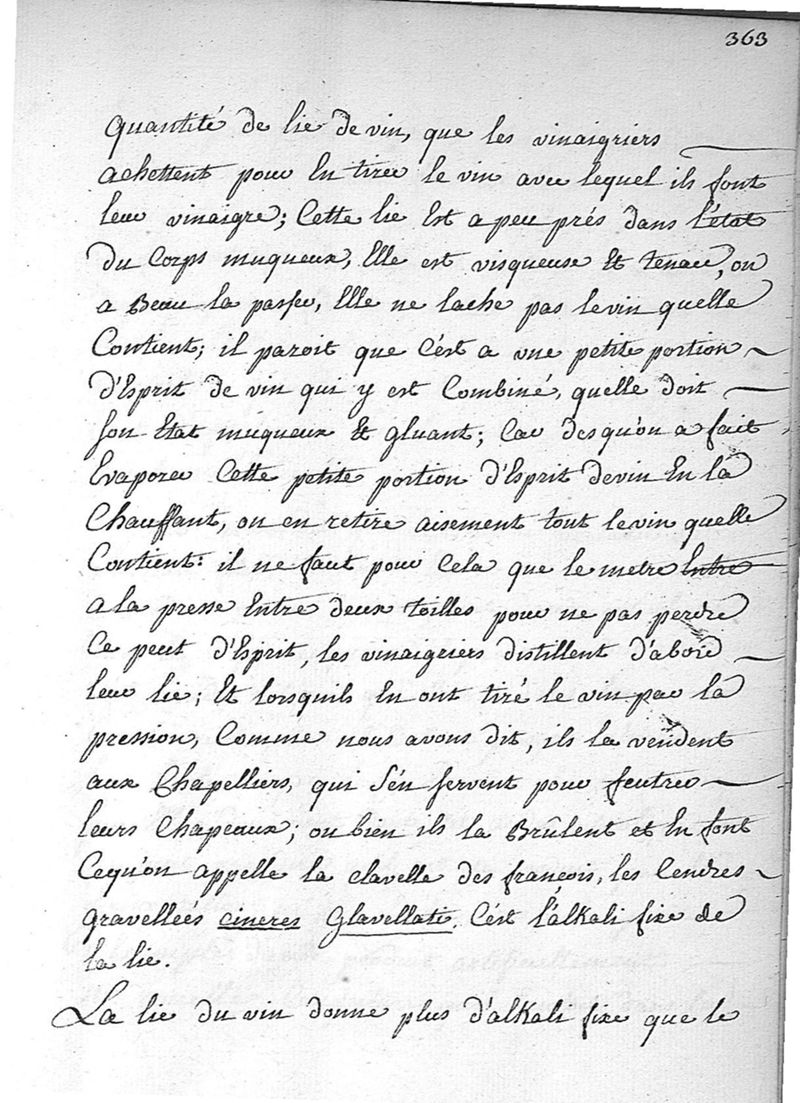 363
quantité de lie de vin, que les vinaigriers
achettent pour En tirer le vin avec lequel ils font
leur vinaigre; Cette lie Est a peu prés dans l'état
du Corps muqueux, Elle est visqueuse Et tenace, on
a Beau la passer, Elle ne lache pas le vin quelle
Contient; il paroit que C'est a une petite portion
d'Esprit de vin qui y est Combiné, quelle doit
son Etat muqueux Et gluant; Car desqu'on a fait
Evaporer Cette petite portion d'Esprit devin En la
Chauffant, on en retire aisement tout levin quelle
Contient: il ne faut pour Cela que le metre Entre
a la presse Entre deux toilles pour ne pas perdre
Ce peut d'Esprit, les vinaigriers distillent d'abord
leur lie; Et lorsquils En ont tiré le vin par la
pression, Comme nous avons dit, ils la vendent
aux Chapelliers, qui S'en servent pour feutrer
leurs Chapeaux; ou bien ils la Brûlent et En font
Cequ'on appelle la clavelle des françois, les Cendres
gravelleés cineres Glavellati. C'est l'alkali fixe de
la lie.
La lie du vin donne plus d'alkali fixe que le